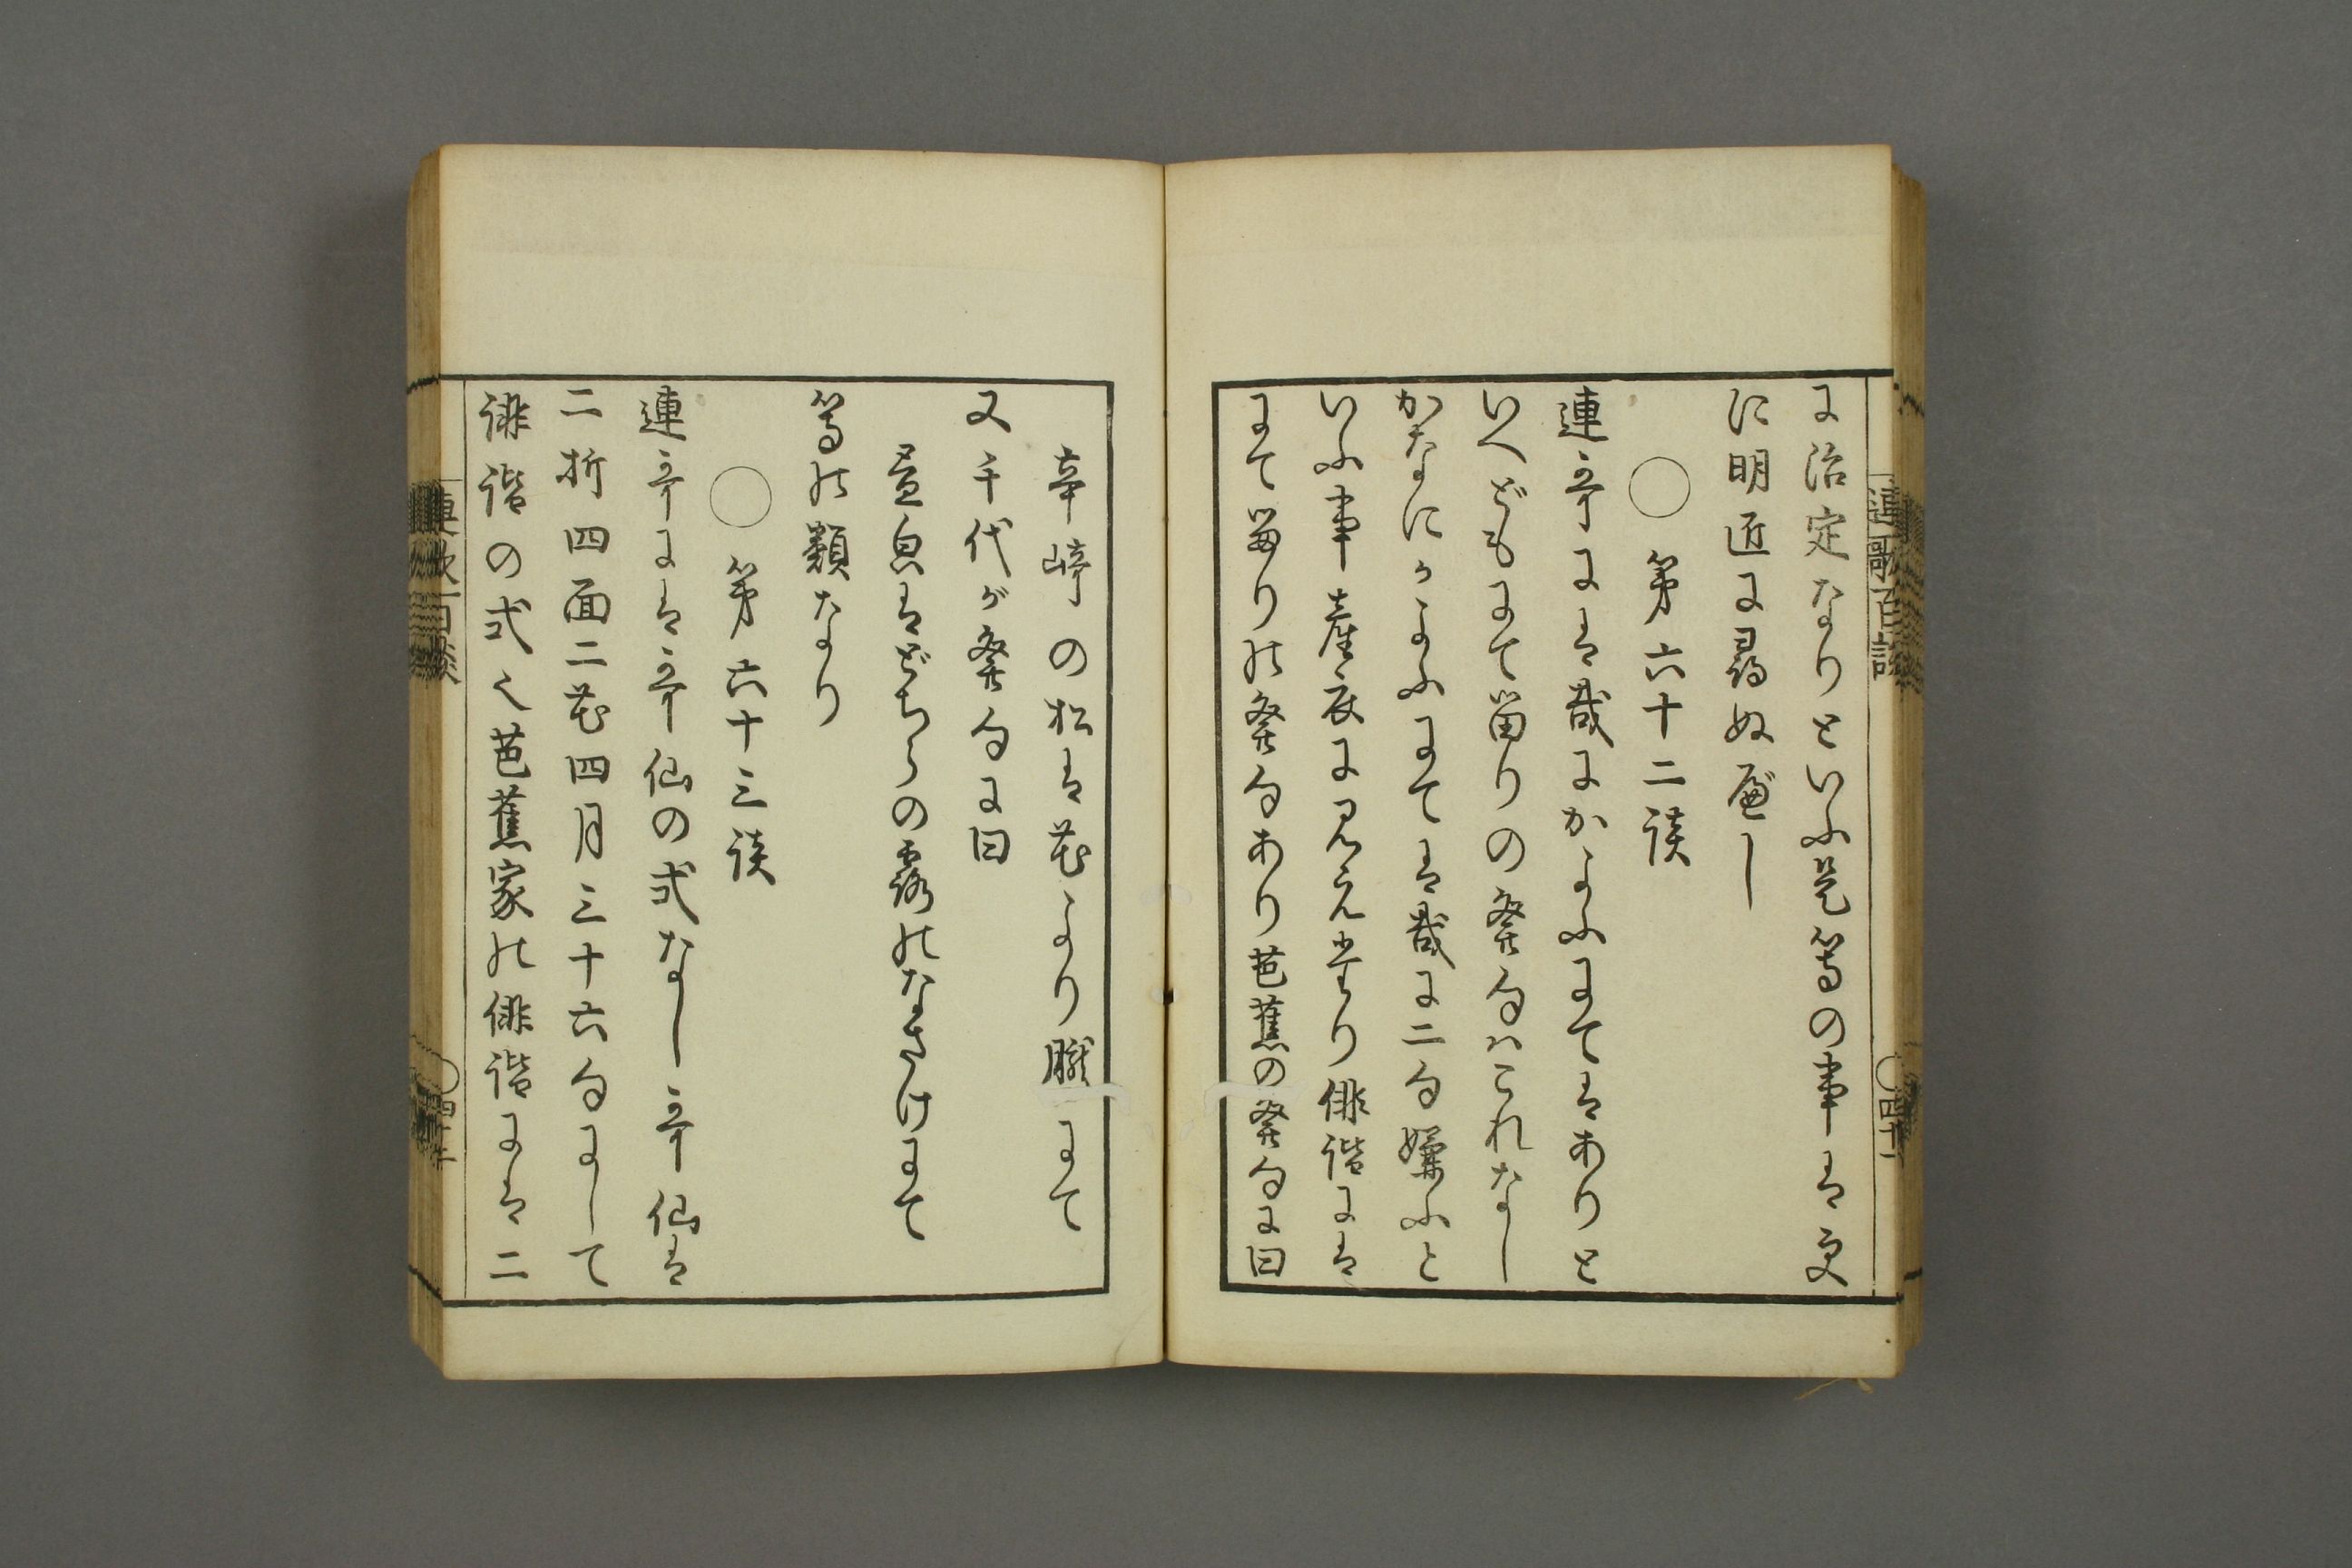 連歌百談
○四十一
に治定なりといふ是等の事は更
に明匠に尋ぬべし
○ 第六十二談
連哥には哉にかよふにてはありと
いへどもにて留りの発句ハこれなし
かなにかよふにては哉に二句嫌ふと
いふ事産衣に見えたり俳諧には
にて留りの発句あり芭蕉の発句に曰
辛崎の松は花より朧にて
又千代が発句に曰
昼皃はどちらの露のなさけにて
等の類なり
○ 第六十三談
連哥には哥仙の式なし哥仙は
二折四面二花四月三十六句にして
誹諧の式也芭蕉家の俳諧には二
連歌百談